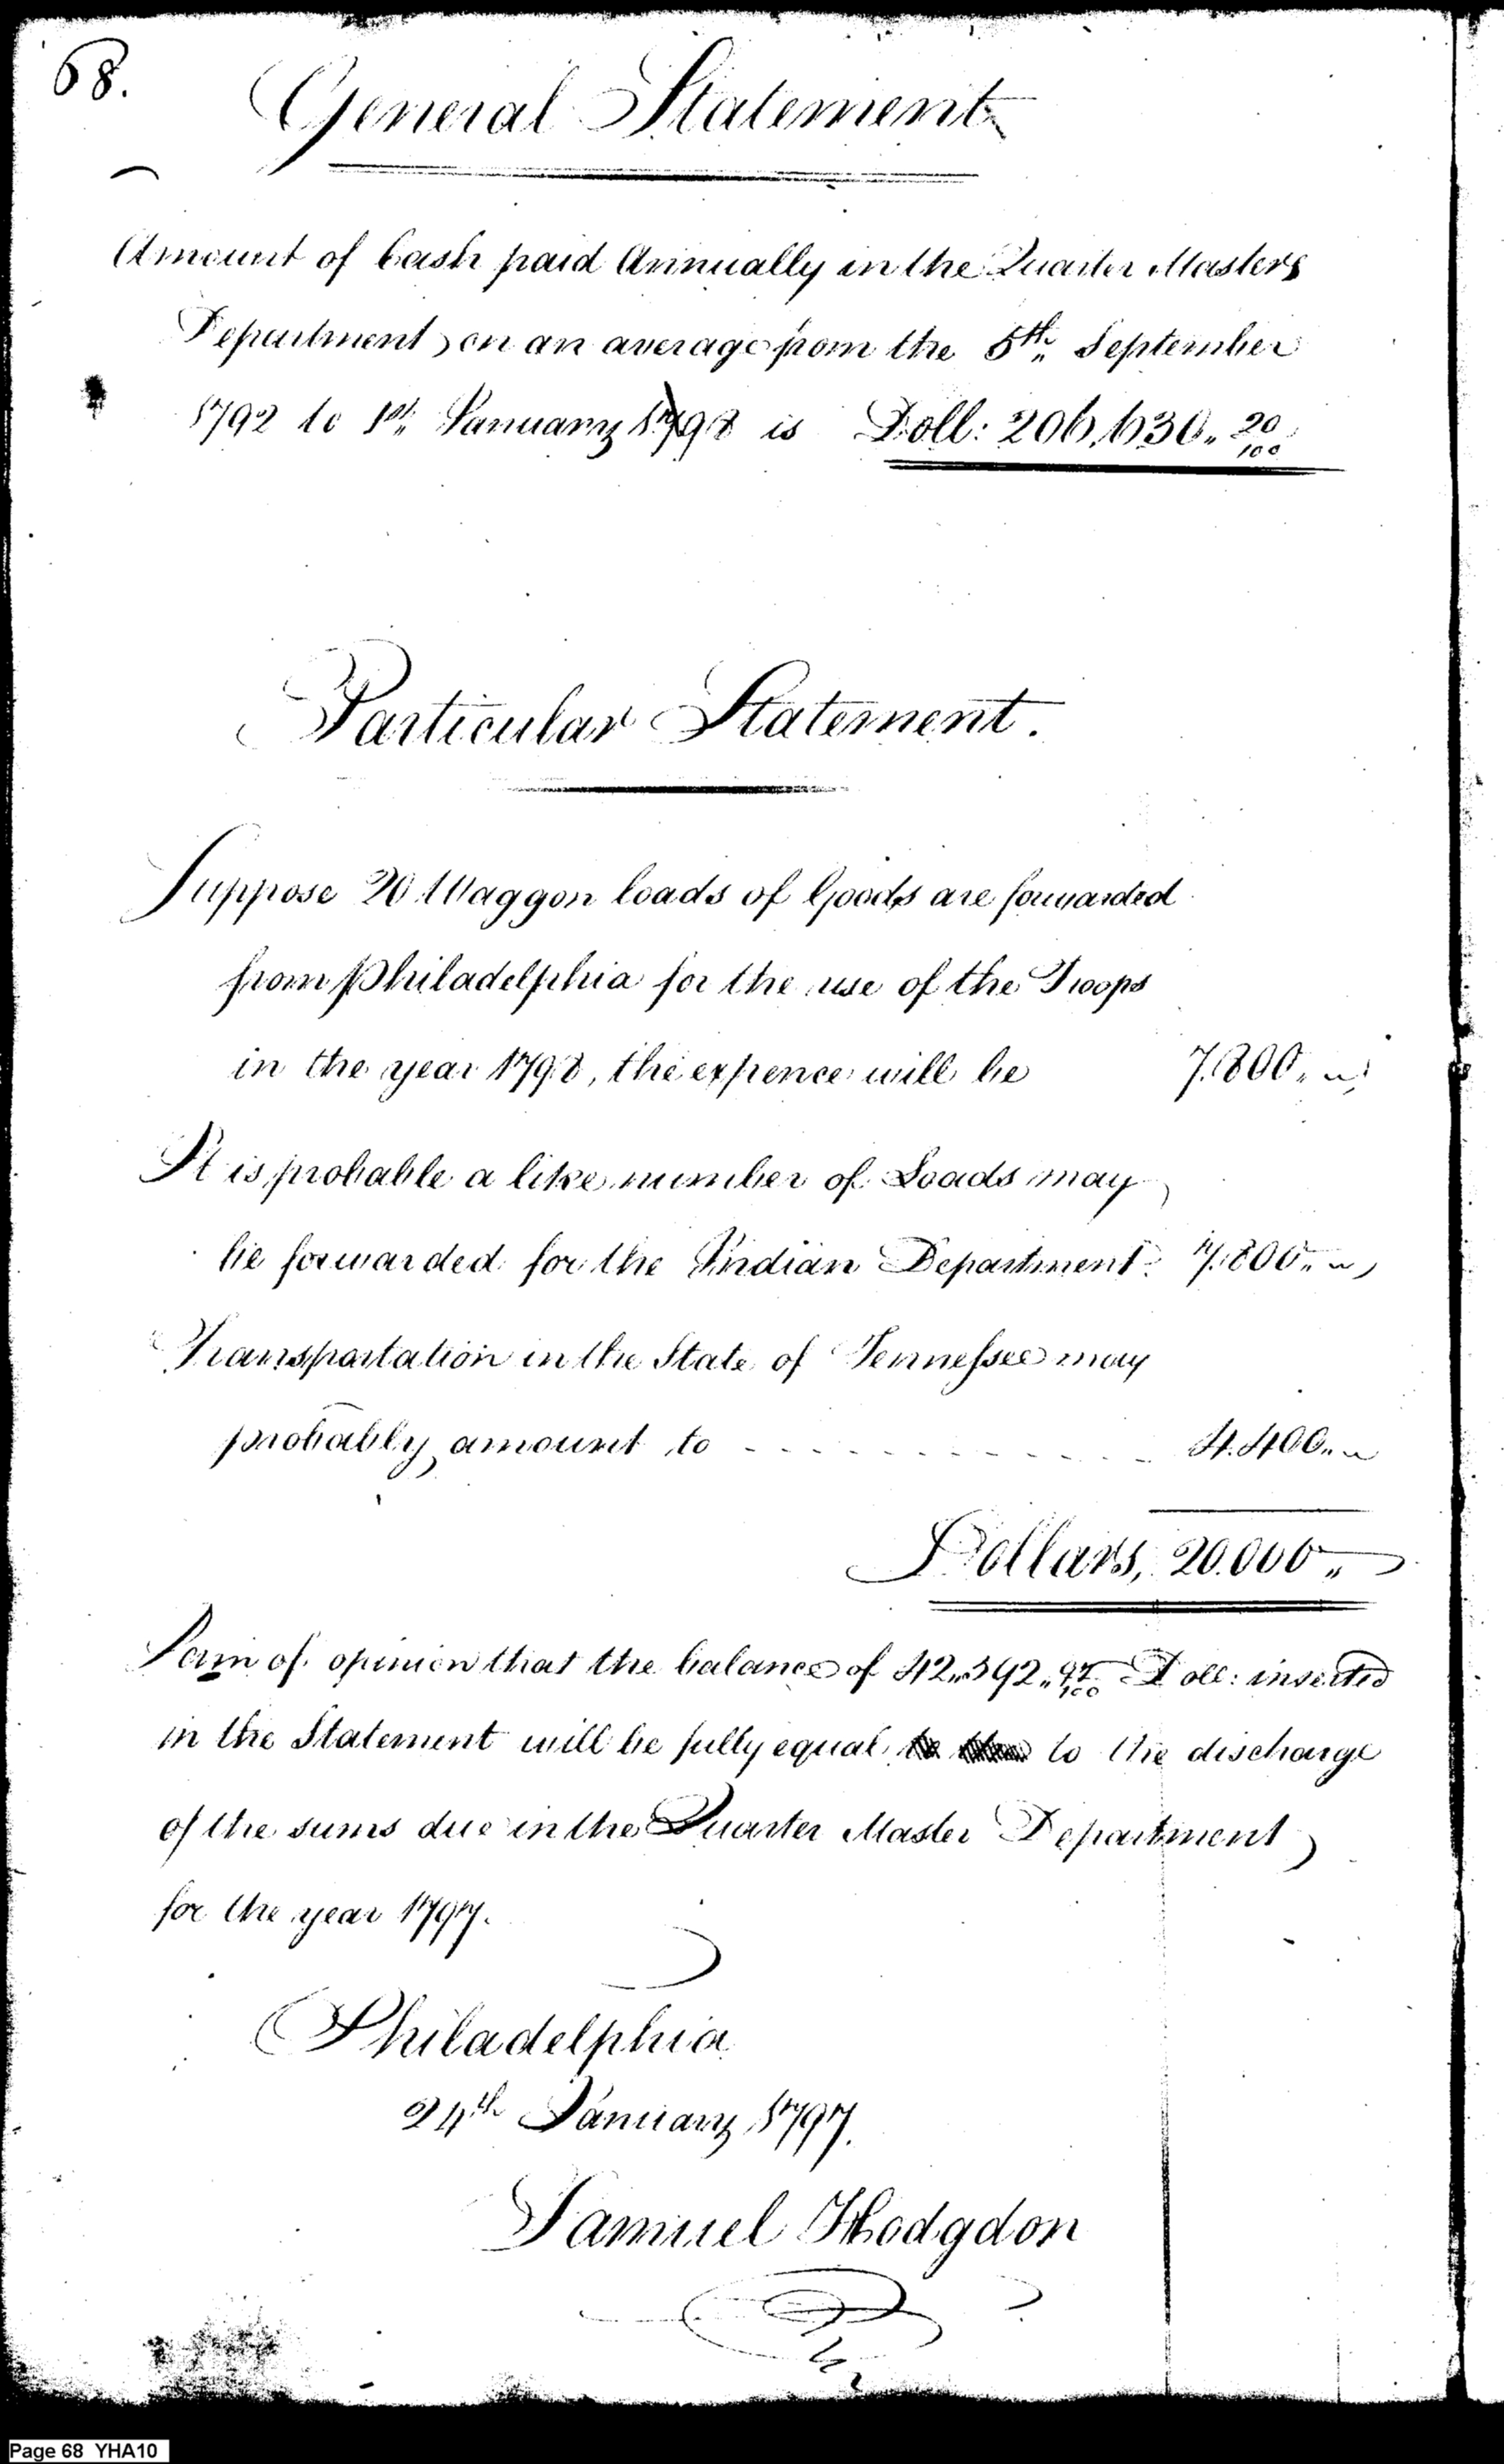 68.
General Statement
Amount of Cash paid Annually in the Quarter Masters
Department, on an average from the 5th,, September
1792 to 1st,, January 1798 is Doll: 206,630,, 20/100
Particular Statement.
Suppose 20 Waggon loads of Goods are forwarded
from Philadelphia for the use of the Troops
in the year 1798, the expence will be 7.800,,
It is probable a like number of Loads may
be forwarded for the Indian Department 7.800,,
Transportation in the State of Tennessee may
probably amount to - - - - - - - - - - - - 4.400,,
Dollars, 20.000,,
I am of opinion that the balance of 42,,392,, 97/100 Doll: inserted
in the Statement will be fully equal to the discharge
of the sums due in the Quarter Master Department
for the year 1797.
Philadelphia
24th January 1797.
Samuel Hodgdon
Page 68 YHA10